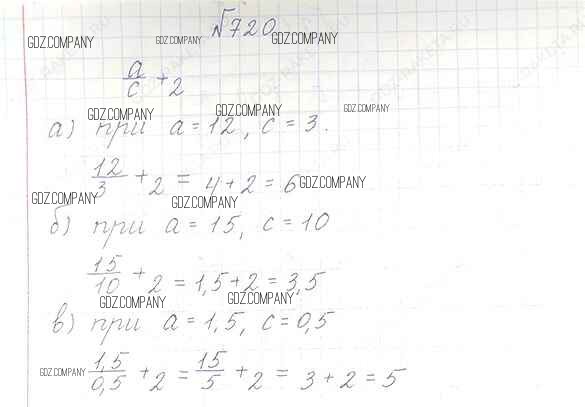 №720
GDZ.COMPANY GDZ.COMPANY GDZ.COMPANY
a/c + 2
GDZ.COMPANY GDZ.COMPANY GDZ.COMPANY
а) при a = 12, c = 3.
12/3 + 2 = 4 + 2 = 6
GDZ.COMPANY
GDZ.COMPANY GDZ.COMPANY
б) при a = 15, c = 10
15/10 + 2 = 1,5 + 2 = 3,5
GDZ.COMPANY GDZ.COMPANY
в) при a = 1,5, c = 0,5
GDZ.COMPANY
1,5/0,5 + 2 = 15/5 + 2 = 3 + 2 = 5